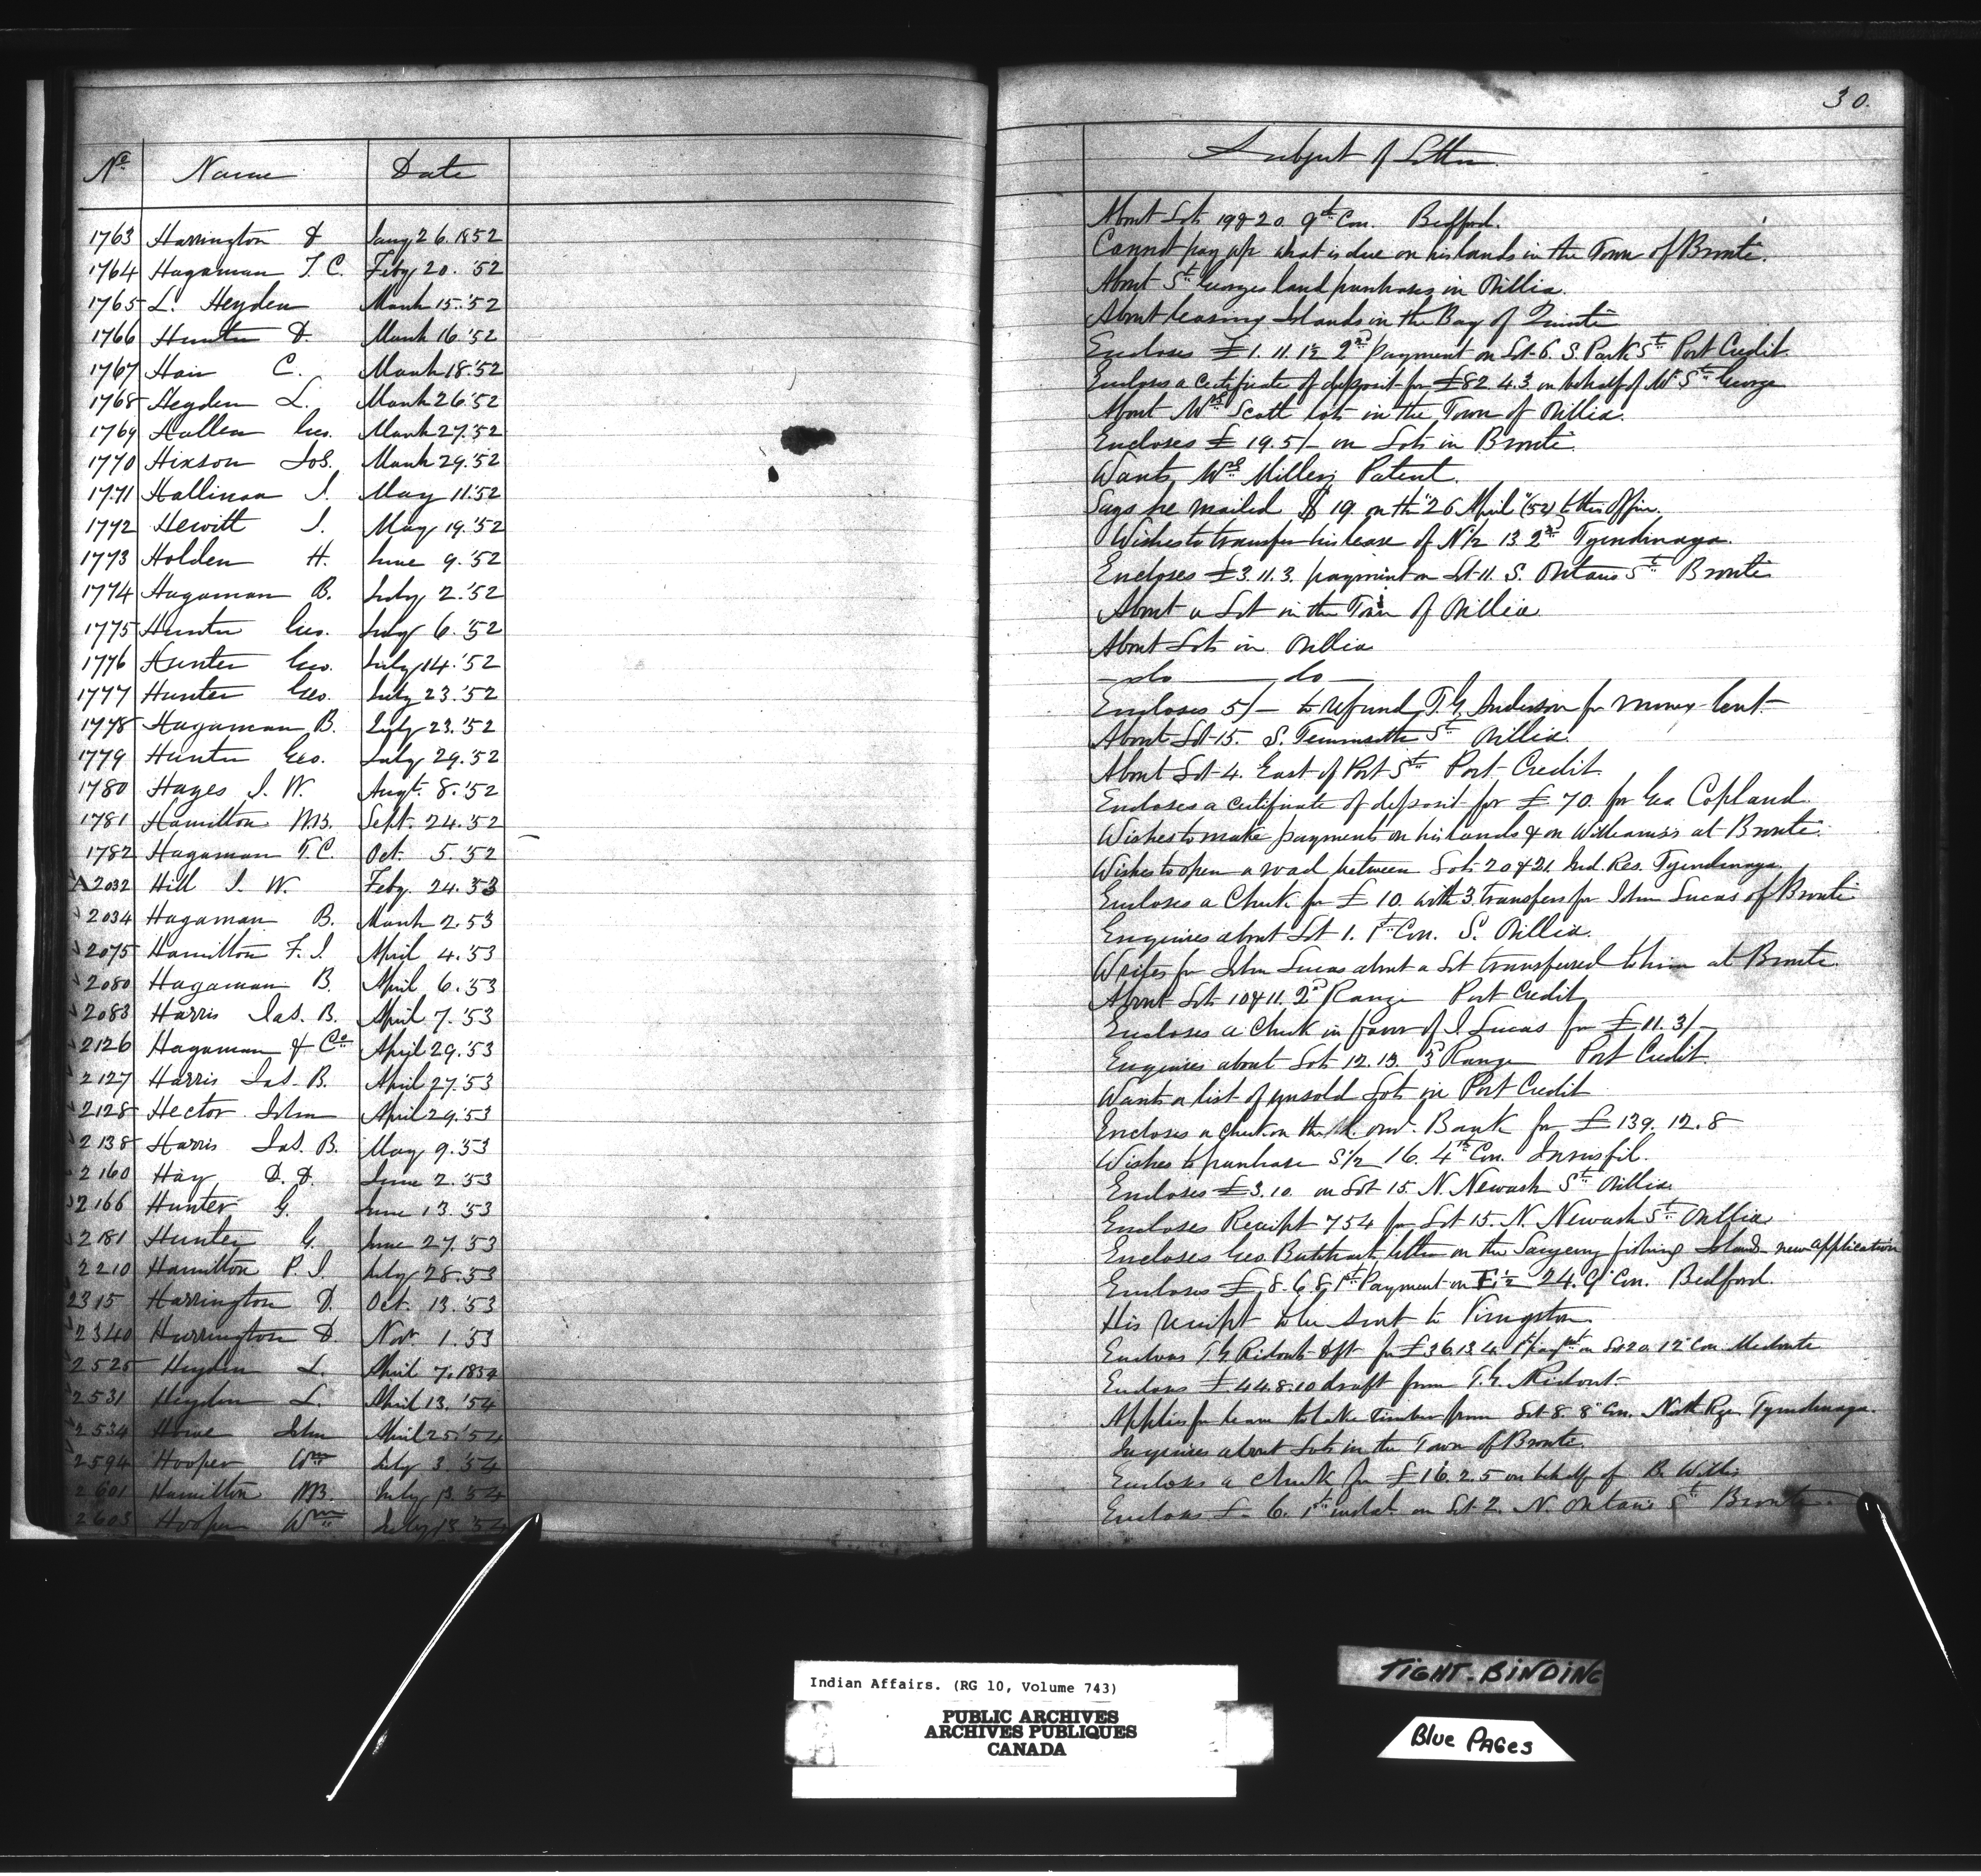 30.
No Name Date Subject of Letter
1763 Harrington D Jany 26. 1852 About Lots 19 & 20. 9th Con. Bedford.
1764 Hagaman T. C. Feby 20. '52 Cannot pay up what is due on his lands in the Town of Bronte.
1765 L. Heyden March 15. '52 About St Georges land purchases in Orillia.
1766 Hunter D. March 16 '52 About leasing Islands in the Bay of Quinté
1767 Hair C. March 18. '52 Encloses £1. 11. 1½ 2nd payment on Lot 6. S. Park St Port Credit.
1768 Heyden L. March 26 '52 Encloses a certificate of deposit for £82. 4. 3. on behalf of Mr St George
1769 Hallen Geo. March 27. '52 About Wm Scott lots in the Town of Orillia.
1770 Hixson Jos. March 29. '52 Encloses £19. 5/- on Lots in Bronte.
1771 Hallinan J. May 11. '52 Wants Wm Millers Patent.
1772 Hewitt J. May 19. '52 Says he mailed $19. on the "26 April" (52) to this Office.
1773 Holden H. June 9. '52 Wishes to transfer his lease of N½ 13. 2nd Tyendinaga.
1774 Hagaman B. July 2. '52 Encloses £3. 11. 3. payment on Lot 11. S. Ontario St Bronte
1775 Hunter Geo. July 6. '52 About a Lot in the Town of Orillia
1776 Hunter Geo. July 14. '52 About Lots in Orillia
1777 Hunter Geo. July 23. '52 - do - do -
1778 Hagaman B. July 23. '52 Encloses 5/- to refund T. G. Anderson for money lent
1779 Hunter Geo. July 29. '52 About Lot 15. S. St Orillia.
1780 Hayes J. W. Augt 8. '52 About Lot 4. East of Port St Port Credit
1781 Hamilton M.B. Sept. 24. '52 Encloses a certificate of deposit for £70. for Geo Copland.
1782 Hagaman T. C. Oct. 5. '52 Wishes to make payments on his lands & on Williams's at Bronte.
2032 Hill J. W. Feby. 24. '53 Wishes to open a road between Lots 20 & 21. Ind. Res. Tyendinaga.
2034 Hagaman B. March 2. 53 Encloses a Check for £10. with 3. transfers for John Lucas of Bronte
2075 Hamilton F. J. April 4. '53 Enquires about Lot 1. 1st Con. S. Orillia.
2080 Hagaman B. April 6. '53 Writes for John Lucas about a Lot transferred to him at Bronte.
2083 Harris Jas. B. April 7. '53 About Lots 10 & 11. 2nd Range Port Credit
2126 Hagaman & Co April 29. '53 Encloses a Check in favor of J. Lucas for £11. 3/-
2127 Harris Jas. B. April 27. '53 Enquires about Lots 12. 13. 3d Range Port Credit.
2128 Hector John April 29. '53 Wants a list of unsold Lots in Port Credit
2138 Harris Jas. B. May 9. '53 Encloses a check on the Bank for £139. 12. 8
2160 Hay D. D. June 2. '53 Wishes to purchase S½ 16. 4th Con. Innisfil.
2166 Hunter G. June 13. '53 Encloses £3. 10. on Lot 15. N. Newash St Orillia.
2181 Hunter G. June 27. '53 Encloses Receipt 754 for Lot 15. N. Newash St Orillia
2210 Hamilton P. J. July 28. '53 Encloses Geo. letter on the Saugeeng fishing Islands new application
2315 Harrington D. Oct. 13. '53 Encloses £8. 6. 8 1st Payment on ½ 24. 9" Con. Bedford.
2340 Harrington D. Novr 1. '53 His receipt to be sent to Kingston
2525 Heyden L. April 7. 1854 Encloses T. G. Ridouts dft for £36. 13. 4. 1st paymt on Lot 20. 12" Con. Medonte
2531 Heyden L. April 13. '54 Encloses £44. 8. 10 draft from T. G. Ridout.
2534 John April 25. '54 Applies for leave to take timber from Lot 8. 8" Con. North Rge Tyendinaga.
2594 Hooper Wm July 3. '54 Inquires about Lots in the Town of Bronte.
2601 Hamilton MB. July 13. '54 Encloses a check for £16. 2. 5 on behalf of B. Willis
2603 Hooper Wm July 13 '54 Encloses £- 6. 1st instat. on Lot 2. N. Ontario St Bronte.
Indian Affairs. (RG 10, Volume 743)
PUBLIC ARCHIVES
ARCHIVES PUBLIQUES
CANADA
TIGHT-BINDING
Blue PAGes